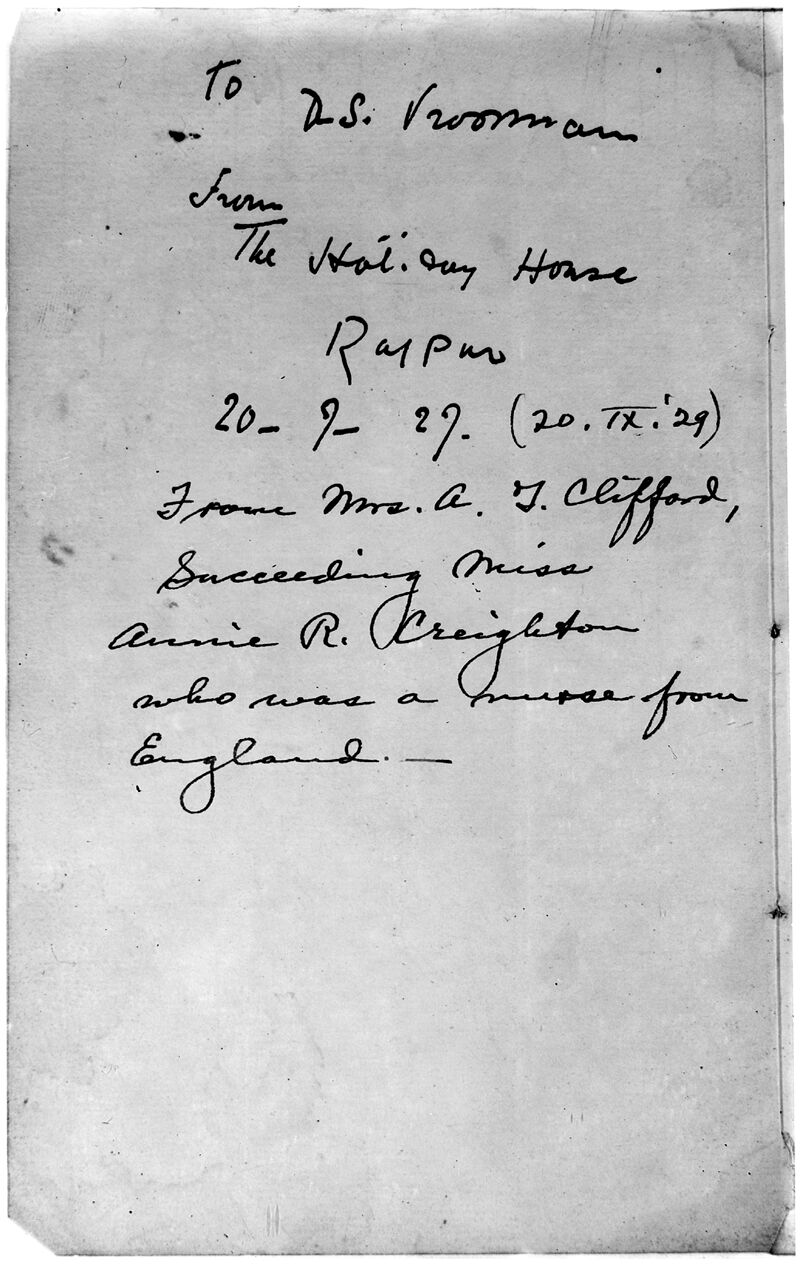 To
D. S. Vrooman
From
The Holiday House
Rajpur
20- 9- 29. (20. IX. '29)
From Mrs. A. T. Clifford,
Succeeding Miss
Annie R. Creighton
who was a nurse from
England. —